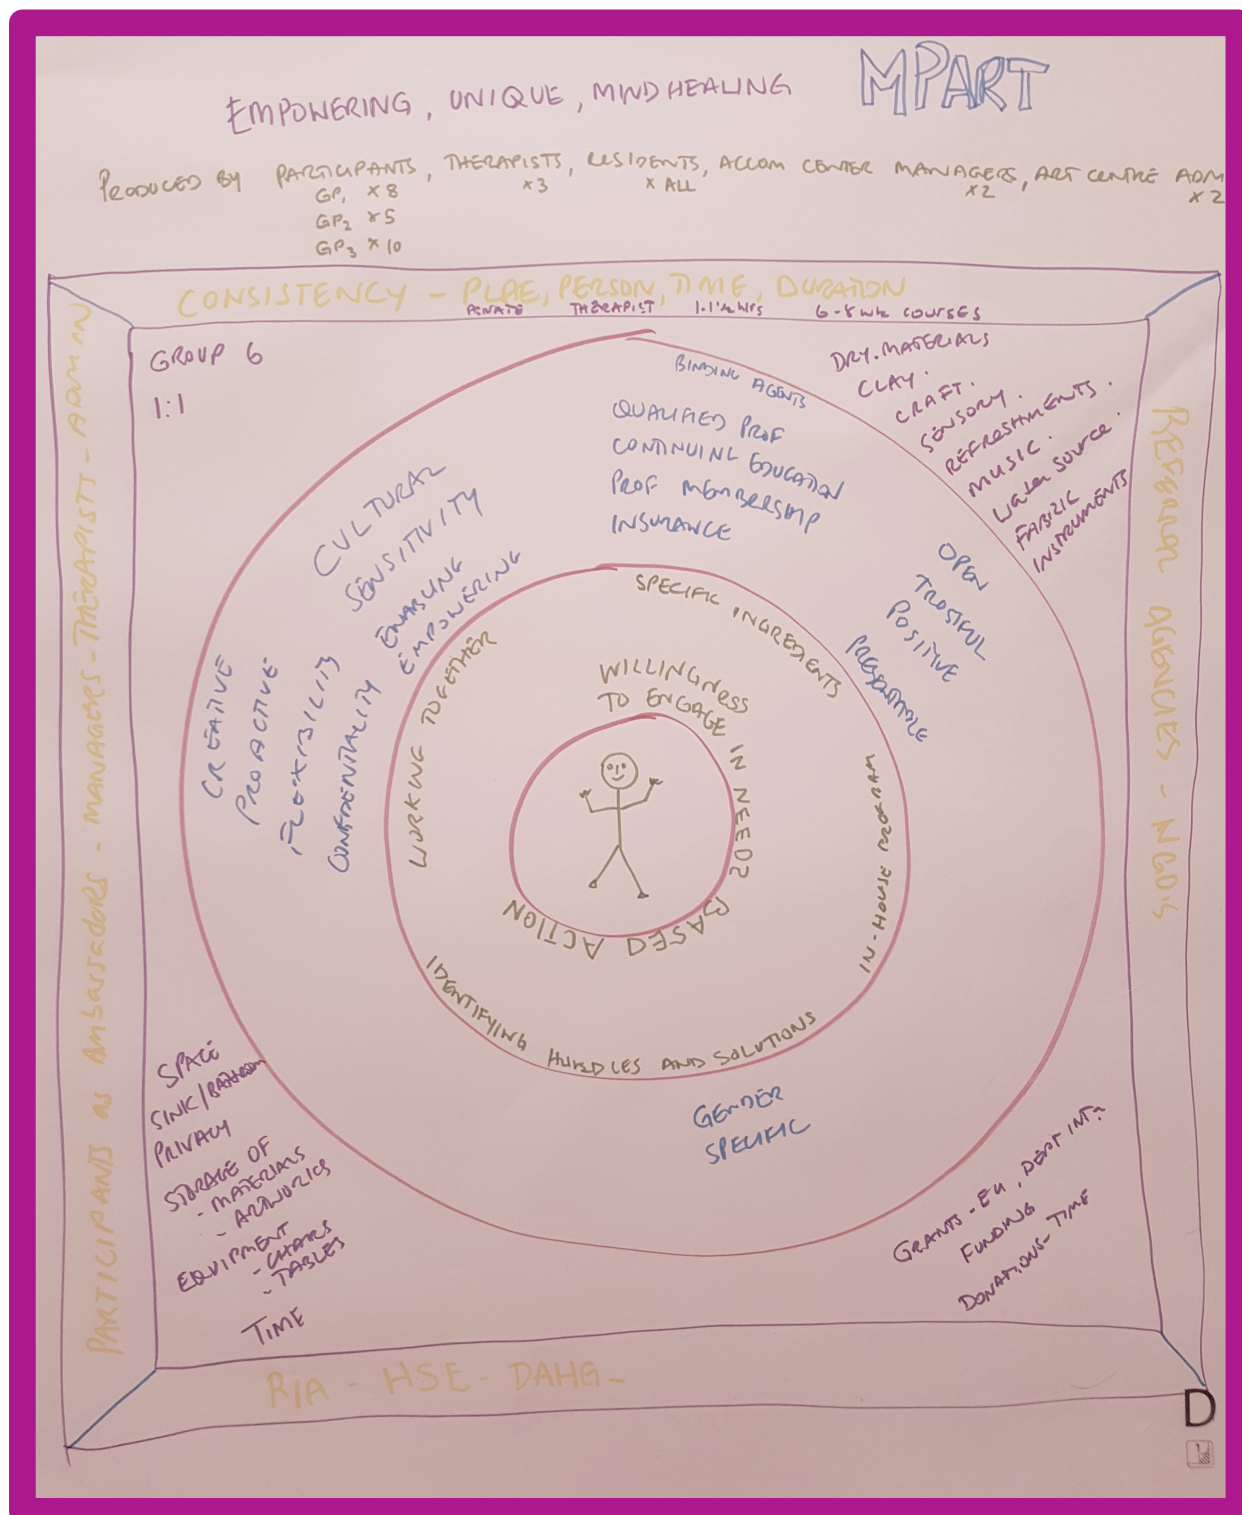 MPART
EMPOWERING, UNIQUE, MINDHEALING
PRODUCED BY PARTICIPANTS, THERAPISTS, RESIDENTS, ACCOM CENTER MANAGERS, ART CENTRE ADM
GP1 x 8
x3
x ALL
x2
x 2
GP2 x 5
GP3 x 10
CONSISTENCY - PLAE, PERSON, TIME, DURATION
THERAPIST
6-8 wk COURSES
GROUP 6
1:1
PARTICIPANTS as Ambassadors - MANAGERS - THERAPISTS - ADMIN
REFERRAL AGENCIES - NGO's
RIA - HSE - DAHG -
DRY. MATERIALS
CLAY.
CRAFT.
SENSORY.
REFRESHMENTS.
MUSIC.
Water source.
FABRIC
INSTRUMENTS
BINDING AGENTS
QUALIFIED PROF
CONTINUING EDUCATION
PROF MEMBERSHIP
INSURANCE
CULTURAL
SENSITIVITY
ENABLING
EMPOWERING
CREATIVE
PROACTIVE
FLEXIBILITY
CONFIDENTIALITY
OPEN
TRUSTFUL
POSITIVE
GENDER
SPECIFIC
WORKING TOGETHER
SPECIFIC INGREDIENTS
IN-HOUSE PROGRAM
IDENTIFYING HURDLES AND SOLUTIONS
WILLINGNESS
TO ENGAGE IN NEEDS BASED ACTION
SPACE
SINK/BATHROOM
PRIVACY
STORAGE OF
- MATERIALS
- ARTWORKS
EQUIPMENT
- CHAIRS
- TABLES
TIME
GRANTS - EU, DEPT INT?
FUNDING
DONATIONS - TIME
D